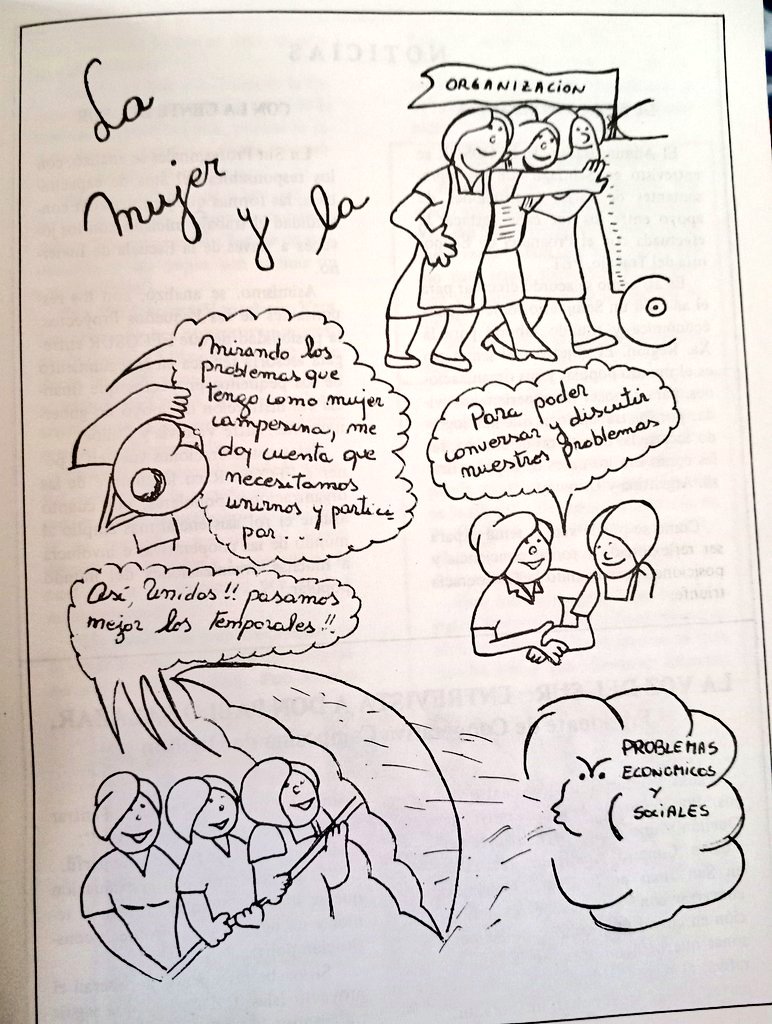 La
mujer y la
ORGANIZACION
mirando los
problemas que
tengo como mujer
campesina, me
doy cuenta que
necesitamos
unirnos y partici
par...
Para poder
conversar y discutir
nuestros problemas
Así, Unidos!! pasamos
mejor los temporales!!
PROBLEMAS
ECONOMICOS
Y
SOCIALES